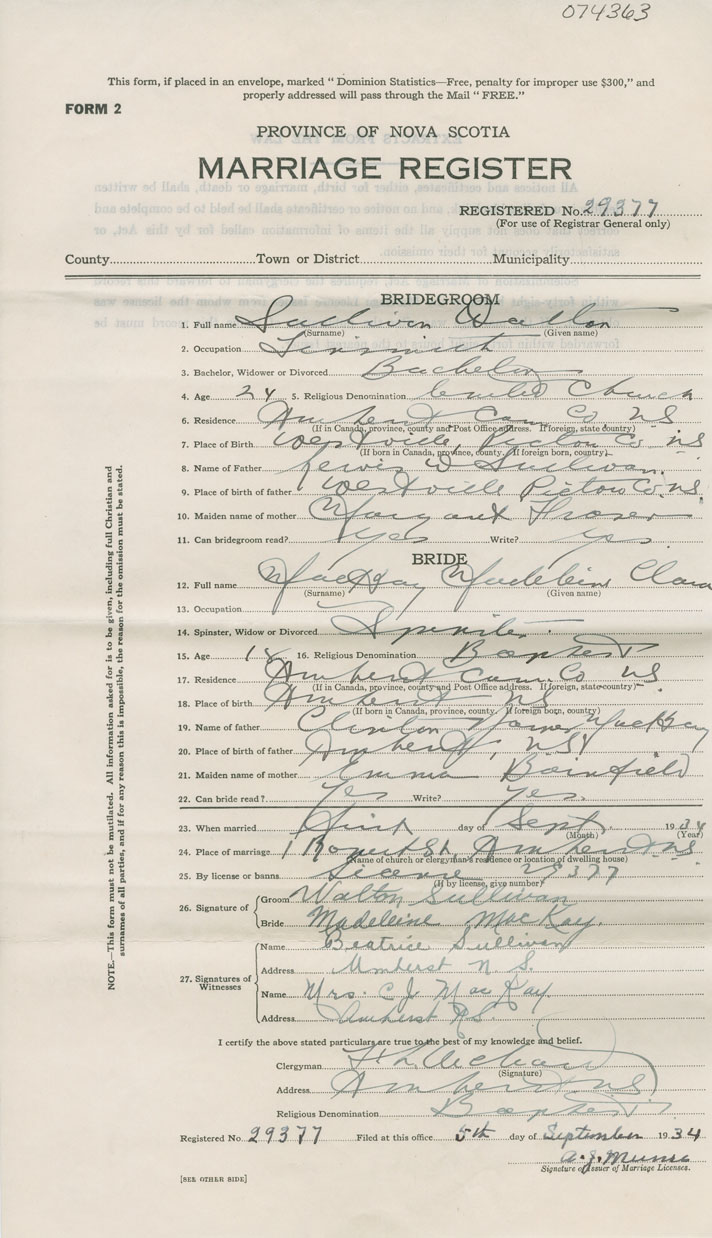 074363
This form, if placed in an envelope, marked " Dominion Statistics—Free, penalty for improper use $300," and
properly addressed will pass through the Mail " FREE."
FORM 2
PROVINCE OF NOVA SCOTIA
MARRIAGE REGISTER
REGISTERED No. 29377
(For use of Registrar General only)
County Town or District Municipality
BRIDEGROOM
1. Full name Sullivan Walton
(Surname) (Given name)
2. Occupation Tinsmith
3. Bachelor, Widower or Divorced Bachelor
4. Age 24 5. Religious Denomination United Church
6. Residence Amherst Cum. Co NS
(If in Canada, province, county and Post Office address. If foreign, state country)
7. Place of Birth Westville, Pictou Co NS
(If born in Canada, province, county. If foreign born, country)
8. Name of Father Lewis D Sullivan.
9. Place of birth of father Westville Pictou Co. NS
10. Maiden name of mother Margaret Fraser
11. Can bridegroom read? Yes Write? Yes.
BRIDE
12. Full name MacKay Madeleine Clara
(Surname) (Given name)
13. Occupation
14. Spinster, Widow or Divorced Spinster.
15. Age 18 16. Religious Denomination Baptist
17. Residence Amherst Cum. Co NS
(If in Canada, province, county and Post Office address. If foreign, state country)
18. Place of birth Amherst NS
(If born in Canada, province, county. If foreign born, country)
19. Name of father Clinton MacKay
20. Place of birth of father Amherst, NS
21. Maiden name of mother Emma
22. Can bride read? Yes Write? Yes.
23. When married First day of Sept 1934
(Month) (Year)
24. Place of marriage 1 Rupert St. Amherst NS
(Name of church or clergyman's residence or location of dwelling house)
25. By license or banns License 29377
(If by license, give number)
26. Signature of Groom Walton Sullivan
Bride Madeleine MacKay.
27. Signatures of Witnesses
Name Beatrice Sullivan
Address Amherst N. S.
Name Mrs. C J. MacKay.
Address Amherst N.S.
I certify the above stated particulars are true to the best of my knowledge and belief.
Clergyman
(Signature)
Address Amherst NS
Religious Denomination Baptist
Registered No. 29377 Filed at this office 5th day of September 1934
A. J. Munro
Signature of Issuer of Marriage Licenses.
[SEE OTHER SIDE]
NOTE.—This form must not be mutilated. All information asked for is to be given, including full Christian and
surnames of all parties, and if for any reason this is impossible, the reason for the omission must be stated.